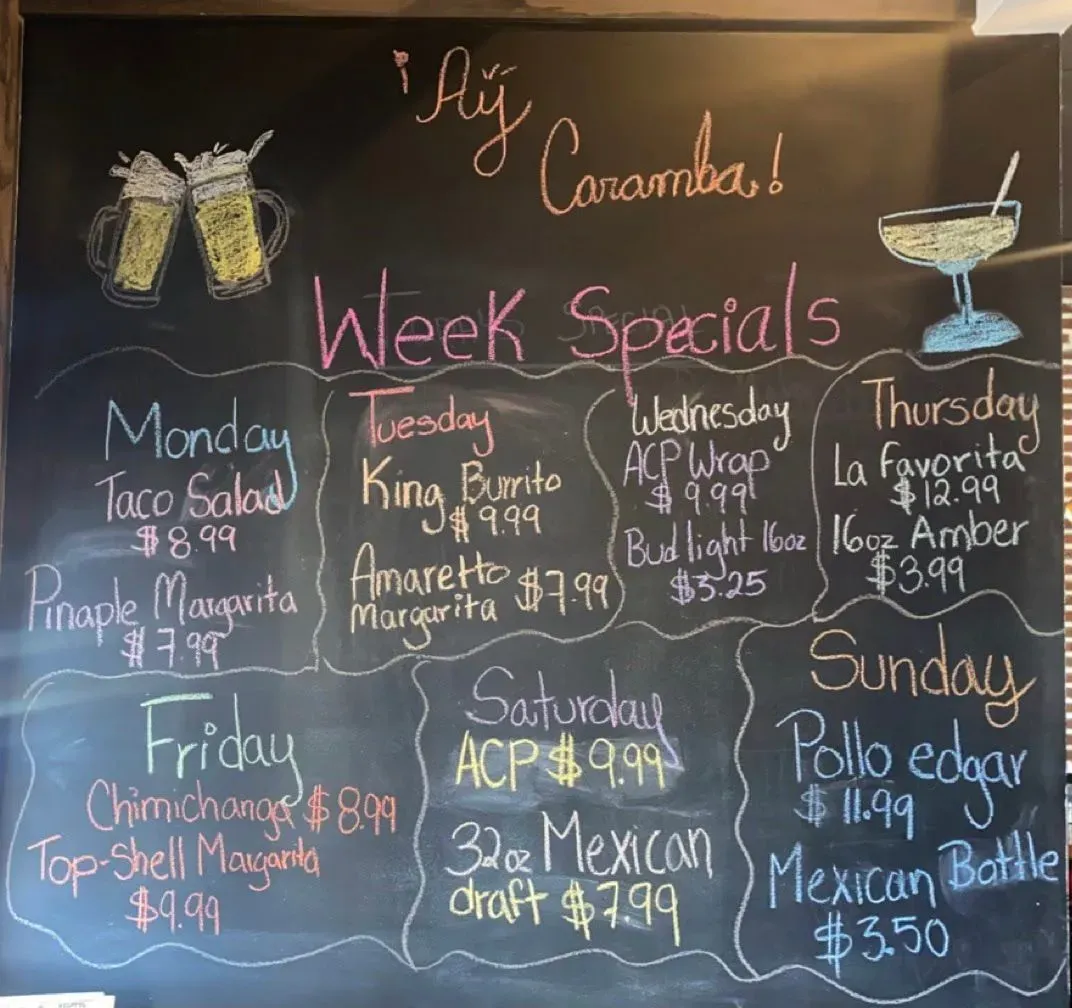 ¡ Aÿ
Caramba!
Week Specials
Monday
Taco Salad
$8.99
Pinaple Margarita
$7.99
Tuesday
King Burrito
$9.99
Amaretto $7.99
Margarita
Wednesday
ACP Wrap
$9.99
Bud light 16oz
$3.25
Thursday
La Favorita
$12.99
16oz Amber
$3.99
Friday
Chimichanga $8.99
Top-Shell Margarita
$9.99
Saturday
ACP $9.99
32oz Mexican
draft $7.99
Sunday
Pollo edgar
$11.99
Mexican Bottle
$3.50